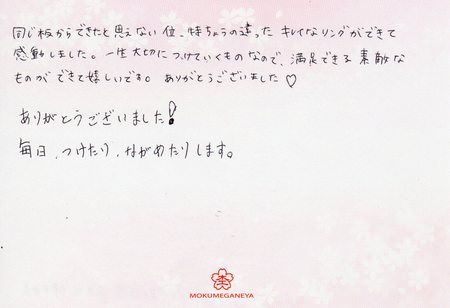 同じ板からできたと思えない位、特ちょうの違った キレイなリングができて
感動しました。一生大切につけていくものなので、満足できる素敵な
ものができて嬉しいです。ありがとうございました♡
ありがとうございました!
毎日、つけたり、ながめたりします。
杢
MOKUMEGANEYA